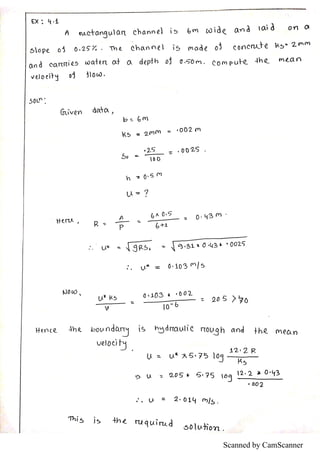 EX : 4.1
A rectangular channel is 6m wide and laid on a
slope of 0.25%. The channel is made of concrete ks= 2mm
and carries water at a depth of 0.50m. compute the mean
velocity of flow.
Soln:
Given data,
b = 6m
Ks = 2mm = .002 m
So = .25 / 100 = .0025.
h = 0.5 m
U = ?
Here, R = A / P = 6 x 0.5 / 6+1 = 0.43 m.
∴ U* = √gRSo = √9.81 x 0.43 x .0025
∴ U* = 0.103 m/s
Now, U* Ks / ν = 0.103 x .002 / 10^-6 = 205 >70
Hence the boundary is hydraulic rough and the mean
velocity
U = U* x 5.75 log 12.2 R / Ks
⇒ U = 205 x 5.75 log 12.2 x 0.43 / .002
∴ U = 2.014 m/s.
This is the required solution.
Scanned by CamScanner